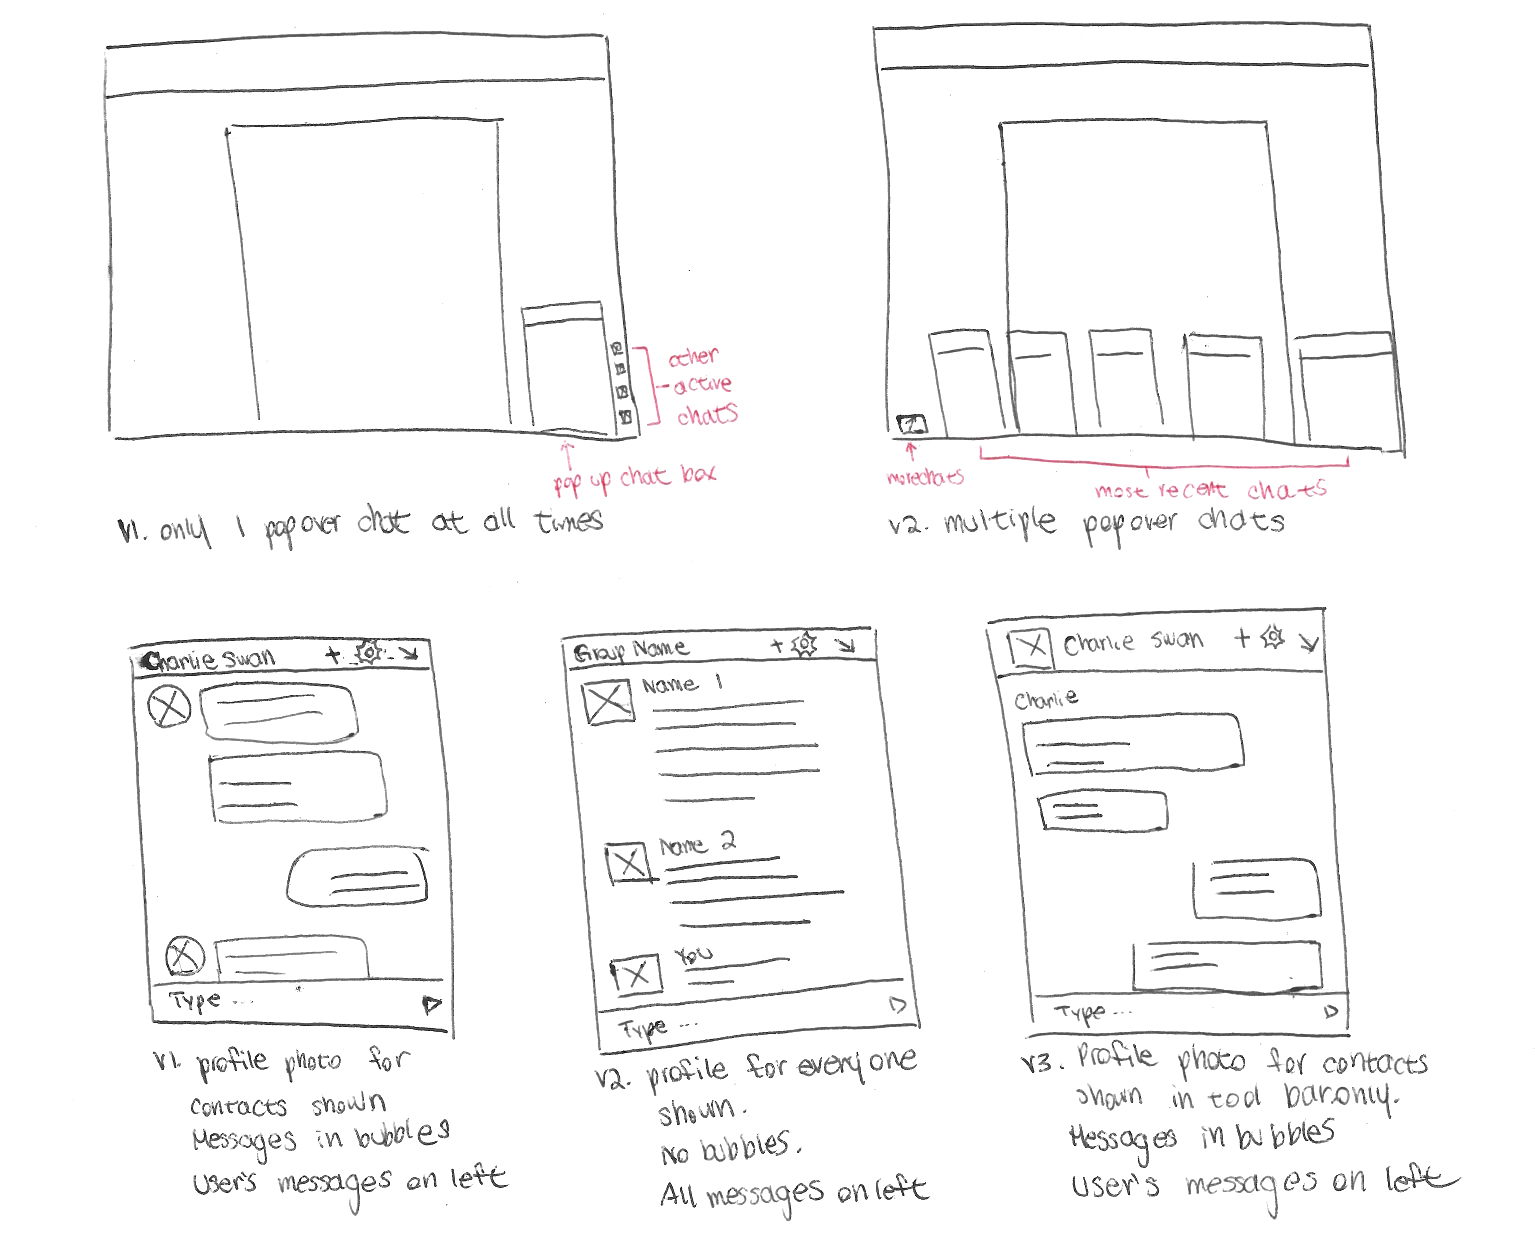 other
active
chats
pop up chat box
v1. only 1 popover chat at all times
more chats
most recent chats
v2. multiple popover chats
Charlie Swan +
Type ...
v1. profile photo for
contacts shown
Messages in bubbles
User's messages on left
Group Name +
Name 1
Name 2
You
Type ...
v2. profile for everyone
shown.
No bubbles.
All messages on left
Charlie Swan +
Charlie
Type ...
v3. Profile photo for contacts
shown in tool bar only.
Messages in bubbles
User's messages on left